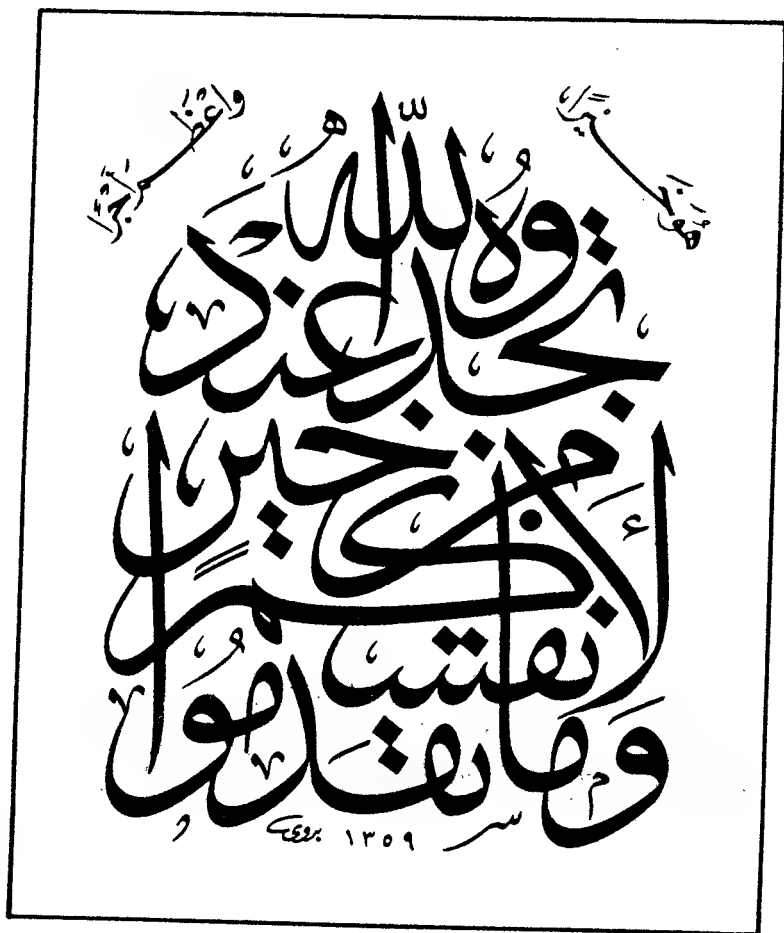 وَمَا تُقَدِّمُوا
لِأَنْفُسِكُمْ
مِنْ خَيْرٍ
تَجِدُوهُ عِنْدَ اللّٰهِ
هُوَ خَيْرًا
وَأَعْظَمَ أَجْرًا
١٣٥٩